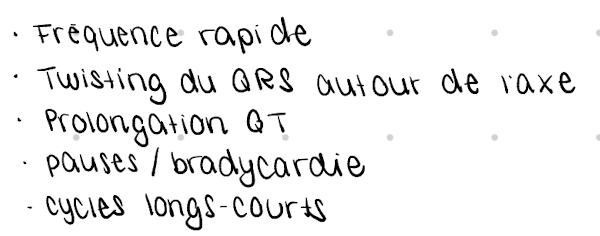 · Fréquence rapide
· Twisting du QRS autour de l'axe
· Prolongation QT
· pauses / bradycardie
· cycles longs-courts